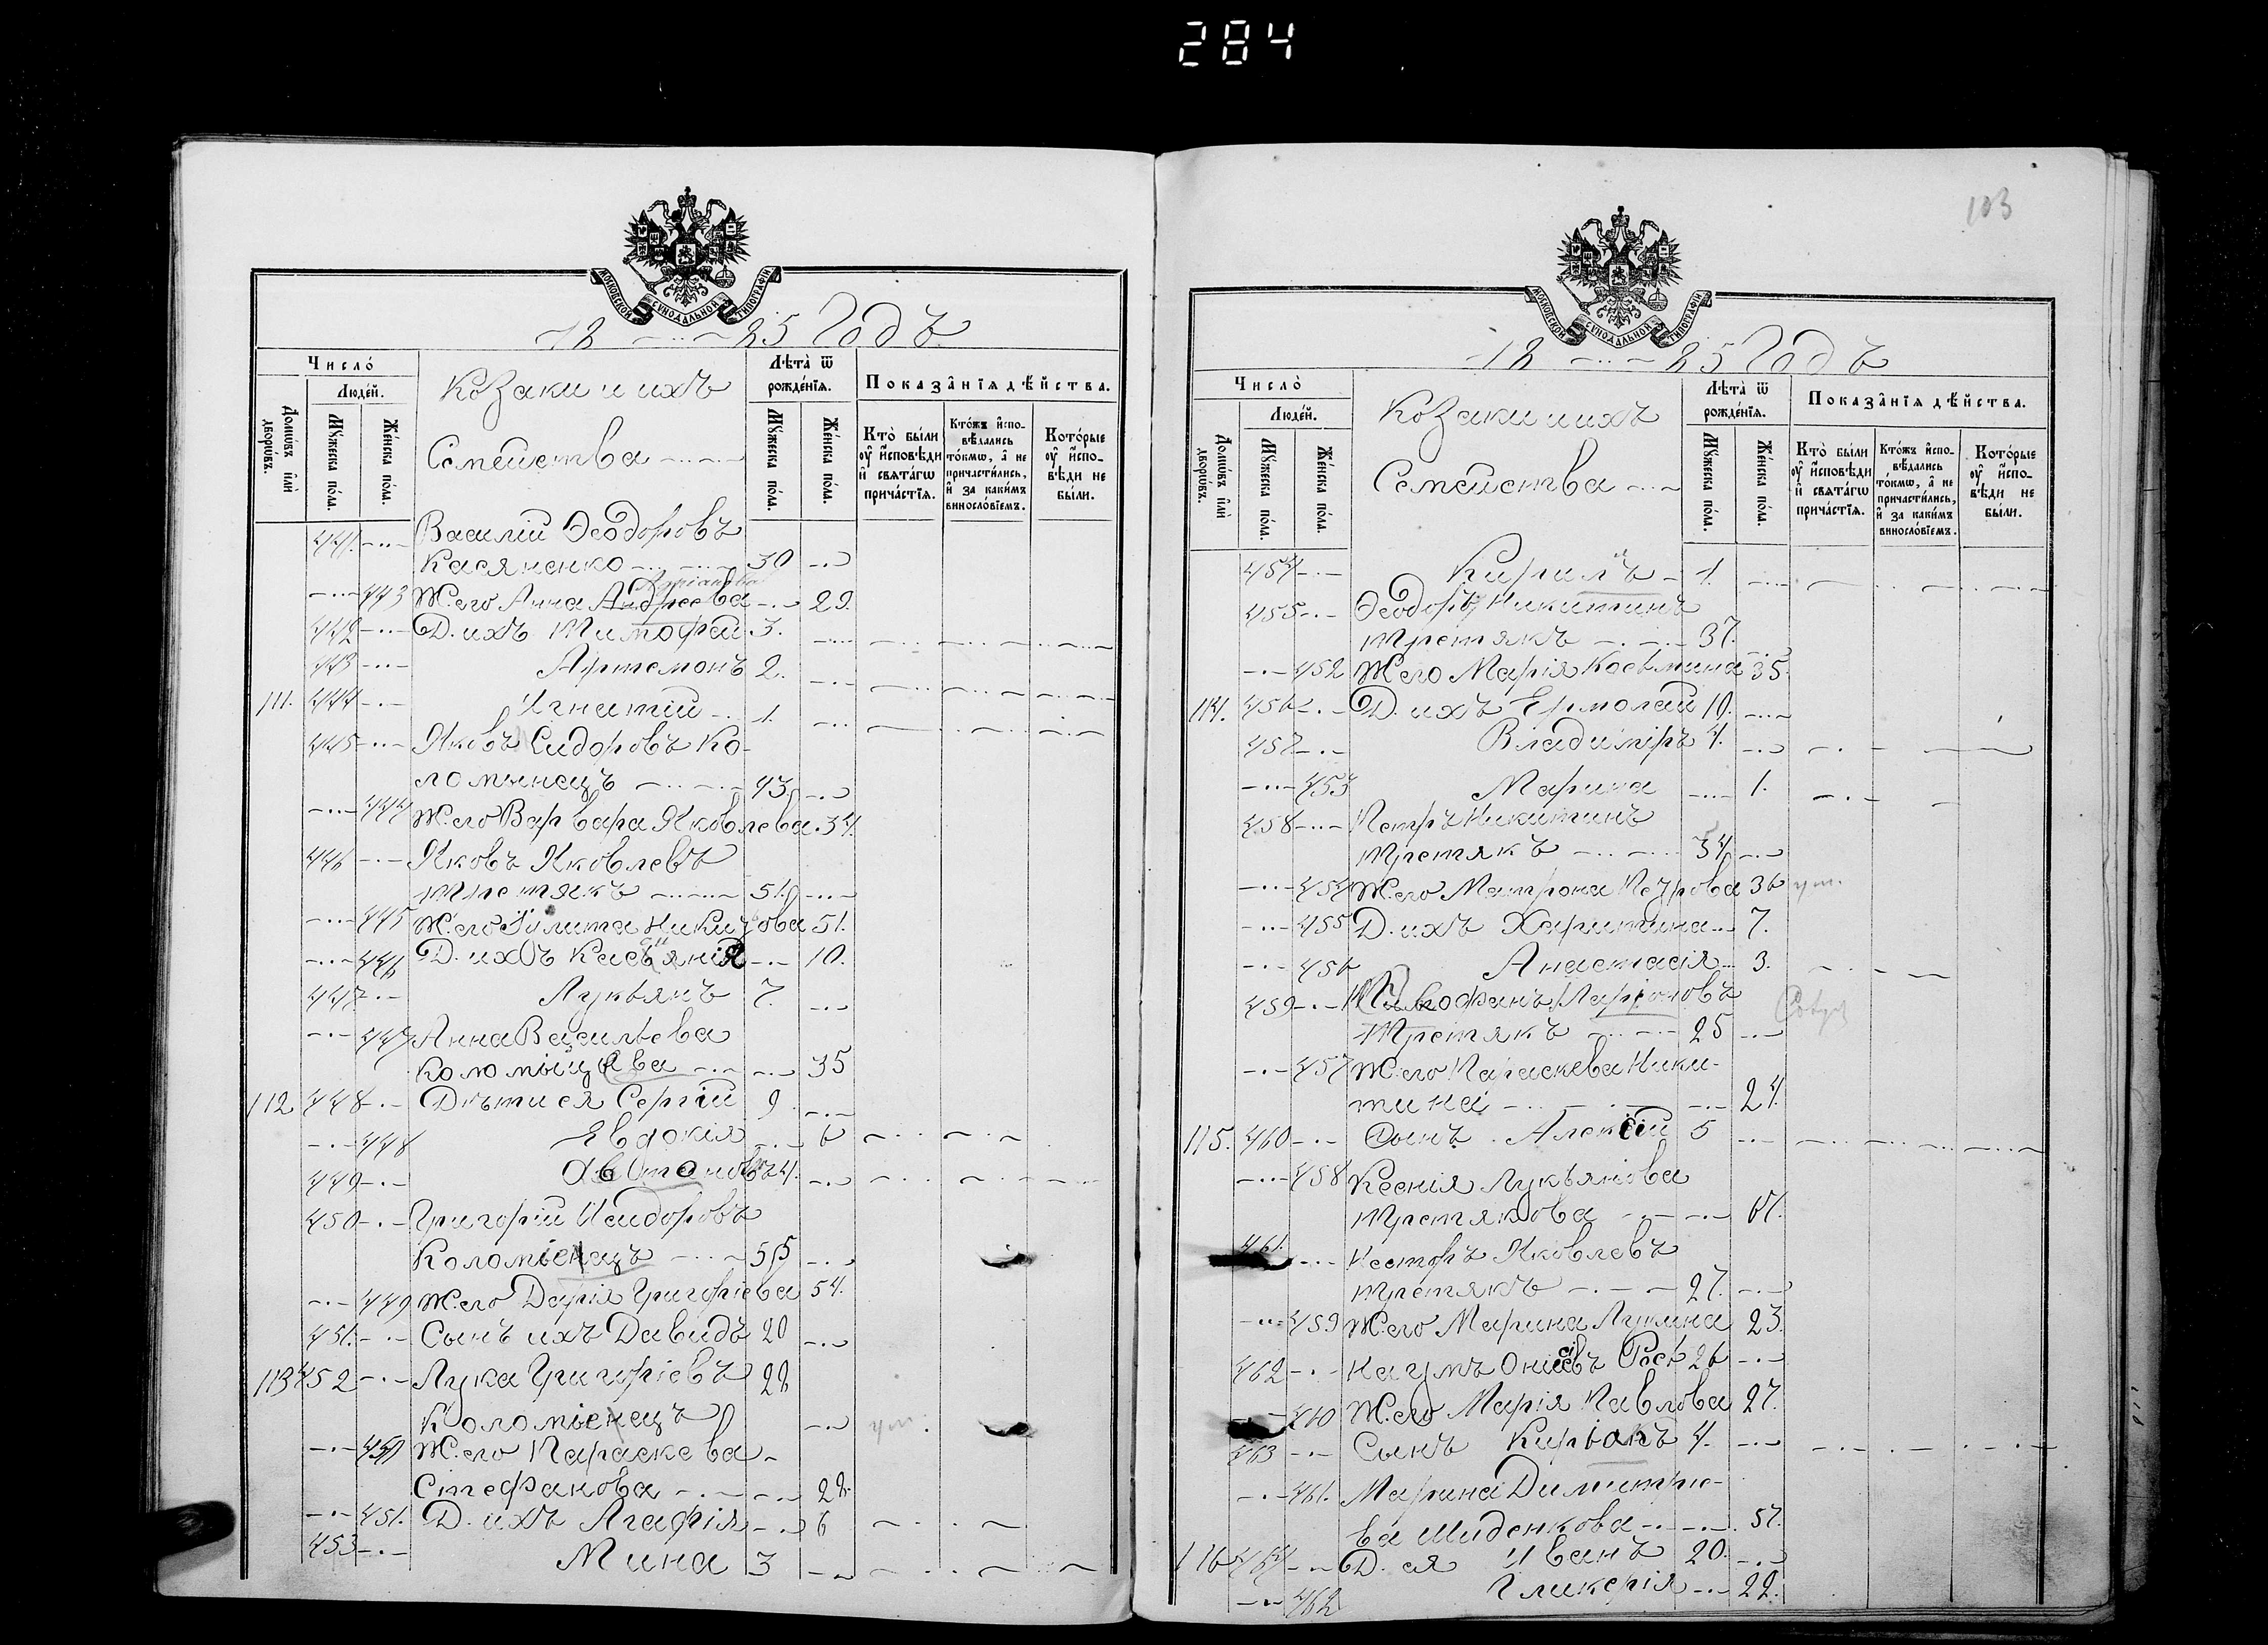 284
МОСКОВСКОЙ СУНОДАЛЬНОЙ ТИПОГРАФІИ
18 -··- 85 Годъ
Число̀
Людей.
Домѡвъ и҆лѝ дворѡвъ.
Мꙋжеска по́ла.
Же́нска по́ла.
Козаки и ихъ
Семейства
Лѣта̀ ѿ рожде́нїѧ.
Мꙋжеска по́ла.
Же́нска по́ла.
Показа̂нїѧ дѣ́йства.
Кто̀ бы́ли ᲂу҆ и҆сповѣди и҆ свята́гѡ прича́стїѧ.
Кто́жъ и҆спо-вѣдались то́кмѡ, а҆ не причасти́лись, и҆ за каки́мъ винословїемъ.
Кото́рые ᲂу҆ и҆спо-вѣди не бы́ли.
441. -··- Василій Ѳеодоровъ
Касяненко -··- 30 -··-
-··- 443 Ж. его Анна Андреева -··- 29.
442 -··- Д. ихъ Тимофей 3.
443 -··- Артемонъ 2.
111. 444 -··- Игнатій 1.
445 -··- Яковъ Сидоровъ Ко-
ломынецъ -··- 43 -··-
-··- 444 Ж. его Варвара Яковлева 34.
446 -··- Яковъ Яковлевъ
Третякъ -··- 51. -··-
-··- 445 Ж. его Іулита 51.
-··- 446 Д. ихъ -··- 10.
447 -··- Лукьянъ 7.
-··- 447 Анна Васильева
-··- 35
112 448 -··- Дѣти ея Сергій 9
-··- 448 Евдокія -··- 6
449 -··- 4.
450 -··- Григорій Исидоровъ
Коломіенецъ -··- 55 -··-
-··- 449 Ж. его Дарія Григоріева 54.
451. -··- Сынъ ихъ Давидъ 20 -··-
113 452 -··- Лука Григоріевъ 28
Коломіенецъ -··- ум.
-··- 450 Ж. его Параскева
Стефанова -··- 28.
-··- 451. Д. ихъ Агафія -··- 6
453 -··- Мина 3 -··-
103
МОСКОВСКОЙ СУНОДАЛЬНОЙ ТИПОГРАФІИ
18 -··- 85 Годъ
Число̀
Людей.
Домѡвъ и҆лѝ дворѡвъ.
Мꙋжеска по́ла.
Же́нска по́ла.
Козаки и ихъ
Семейства
Лѣта̀ ѿ рожде́нїѧ.
Мꙋжеска по́ла.
Же́нска по́ла.
Показа̂нїѧ дѣ́йства.
Кто̀ бы́ли ᲂу҆ и҆сповѣди и҆ свята́гѡ прича́стїѧ.
Кто́жъ и҆спо-вѣдались то́кмѡ, а҆ не причасти́лись, и҆ за каки́мъ винословїемъ.
Кото́рые ᲂу҆ и҆спо-вѣди не бы́ли.
454 -··- Кирилъ 1. -··-
455 -··- Ѳеодоръ Никитинъ
Третякъ -··- 37.
-··- 452 Ж. его Марія Косьмина 35.
114. 456 -··- Д. ихъ Ермолай 10. -··-
457 -··- Владиміръ 4. -··-
-··- 453 Марина -··- 1.
458 -··- Петръ Никитинъ
Третякъ -··- 34 -··-
-··- 454 Ж. его Матрона Петрова 36 ум.
-··- 455 Д. ихъ Харитина 7.
-··- 456 Анастасія 3.
459 -··- Ларіоновъ
Третякъ -··- 25 -··-
-··- 457 Ж. его Параскева Ники-
тина -··- 24.
115. 460 -··- Сынъ Алексій 5 -··-
-··- 458 Ксенія Лукьянова
Третякова -··- 61.
461. -··- Несторъ Яковлевъ
Третякъ -··- 27. -··-
-··- 459 Ж. его Марина Лукина 23.
462 -··- Наумъ 26 -··-
-··- 460 Ж. его Марія Павлова 27.
463 -··- Сынъ 4. -··-
-··- 461. Марина Димитріе-
ва Шиденкова -··- 57.
116 464 -··- Д. ея Иванъ 20. -··-
-··- 462 Гликерія -··- 22.